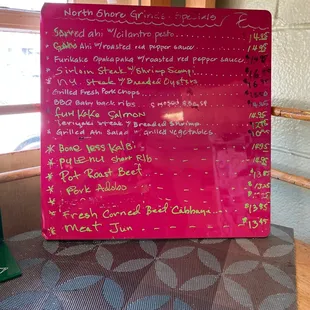 North Shore Grinds Specials
Seared ahi w/cilantro pesto 14.95
Ahi w/roasted red pepper sauce 14.95
Furikake Opakapaka w/roasted red pepper sauce
Sirloin Steak w/Shrimp Scampi
N.Y. Steak w/Breaded Oysters
Grilled Fresh Pork Chops
BBQ Baby back ribs
Furikake Salmon 14.95
Teriyaki Steak w/Breaded Shrimp
Grilled Ahi Salad Grilled vegetables
* Boneless Kalbi
* Pulehu Short Rib
* Pot Roast Beef 13.95
* Pork Adobo
Fresh Corned Beef Cabbage 13.95
* Meat Jun 13.95